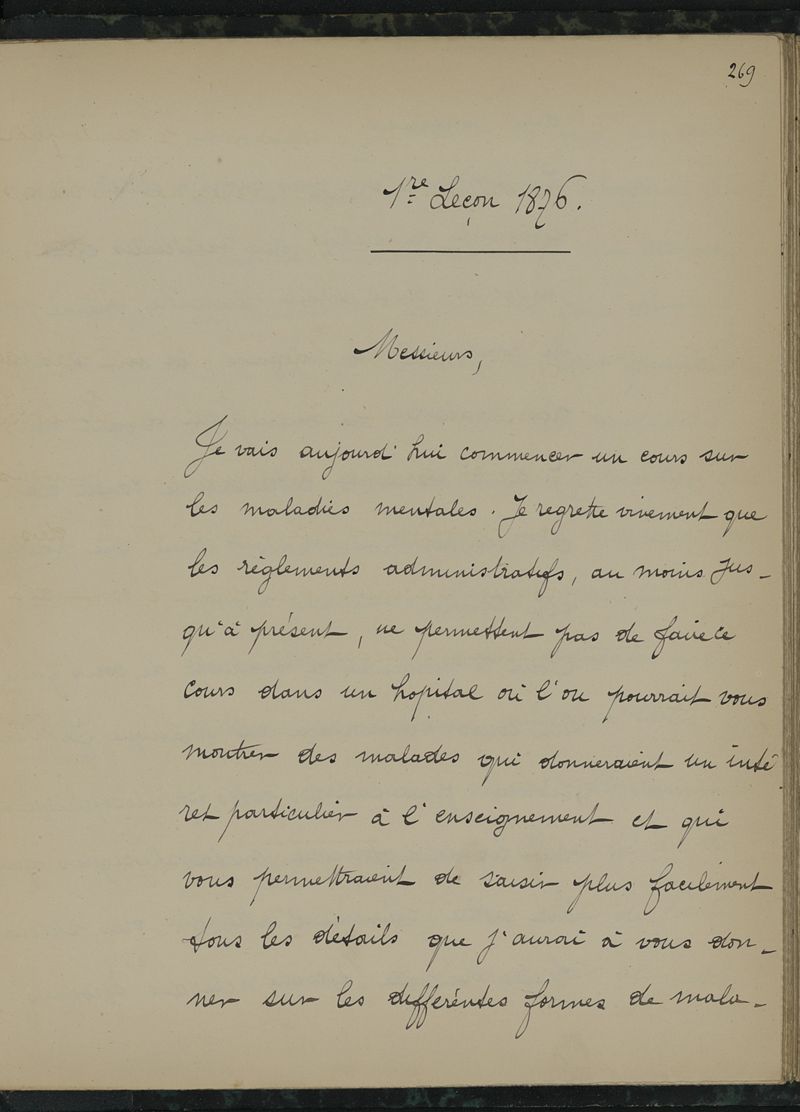 269
1re Leçon 1876.
Messieurs,
Je vais aujourd'hui commencer un cours sur
les maladies mentales. Je regrette vivement que
les règlements administratifs, au moins jus-
qu'à présent, ne permettent pas de faire ce
cours dans un hopital où l'on pourrait vous
montrer des malades qui donneraient un inté
rêt particulier à l'enseignement et qui
vous permettraient de saisir plus facilement
tous les détails que j'aurai à vous don-
ner sur les différentes formes de mala-